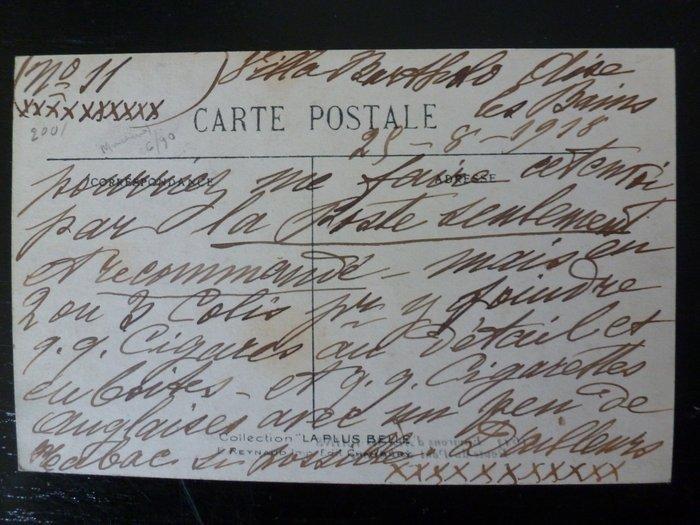 No 11
Villa Bartholo Aix
les Bains
xxxxxxxxxxx
2001
CARTE POSTALE
25-8-1918
CORRESPONDANCE
ADRESSE
pourriez me faire cet envoi
par la Poste seulement
et recommandé - mais en
2 ou 3 Colis pr y joindre
q.q. Cigares au Détail et
en boîtes - et q.q. Cigarettes
Anglaises avec un peu de
Tabac si possible D'ailleurs
Collection "LA PLUS BELLE"
REYNAUD CHAMBÉRY
xxxxxxxxxxxx